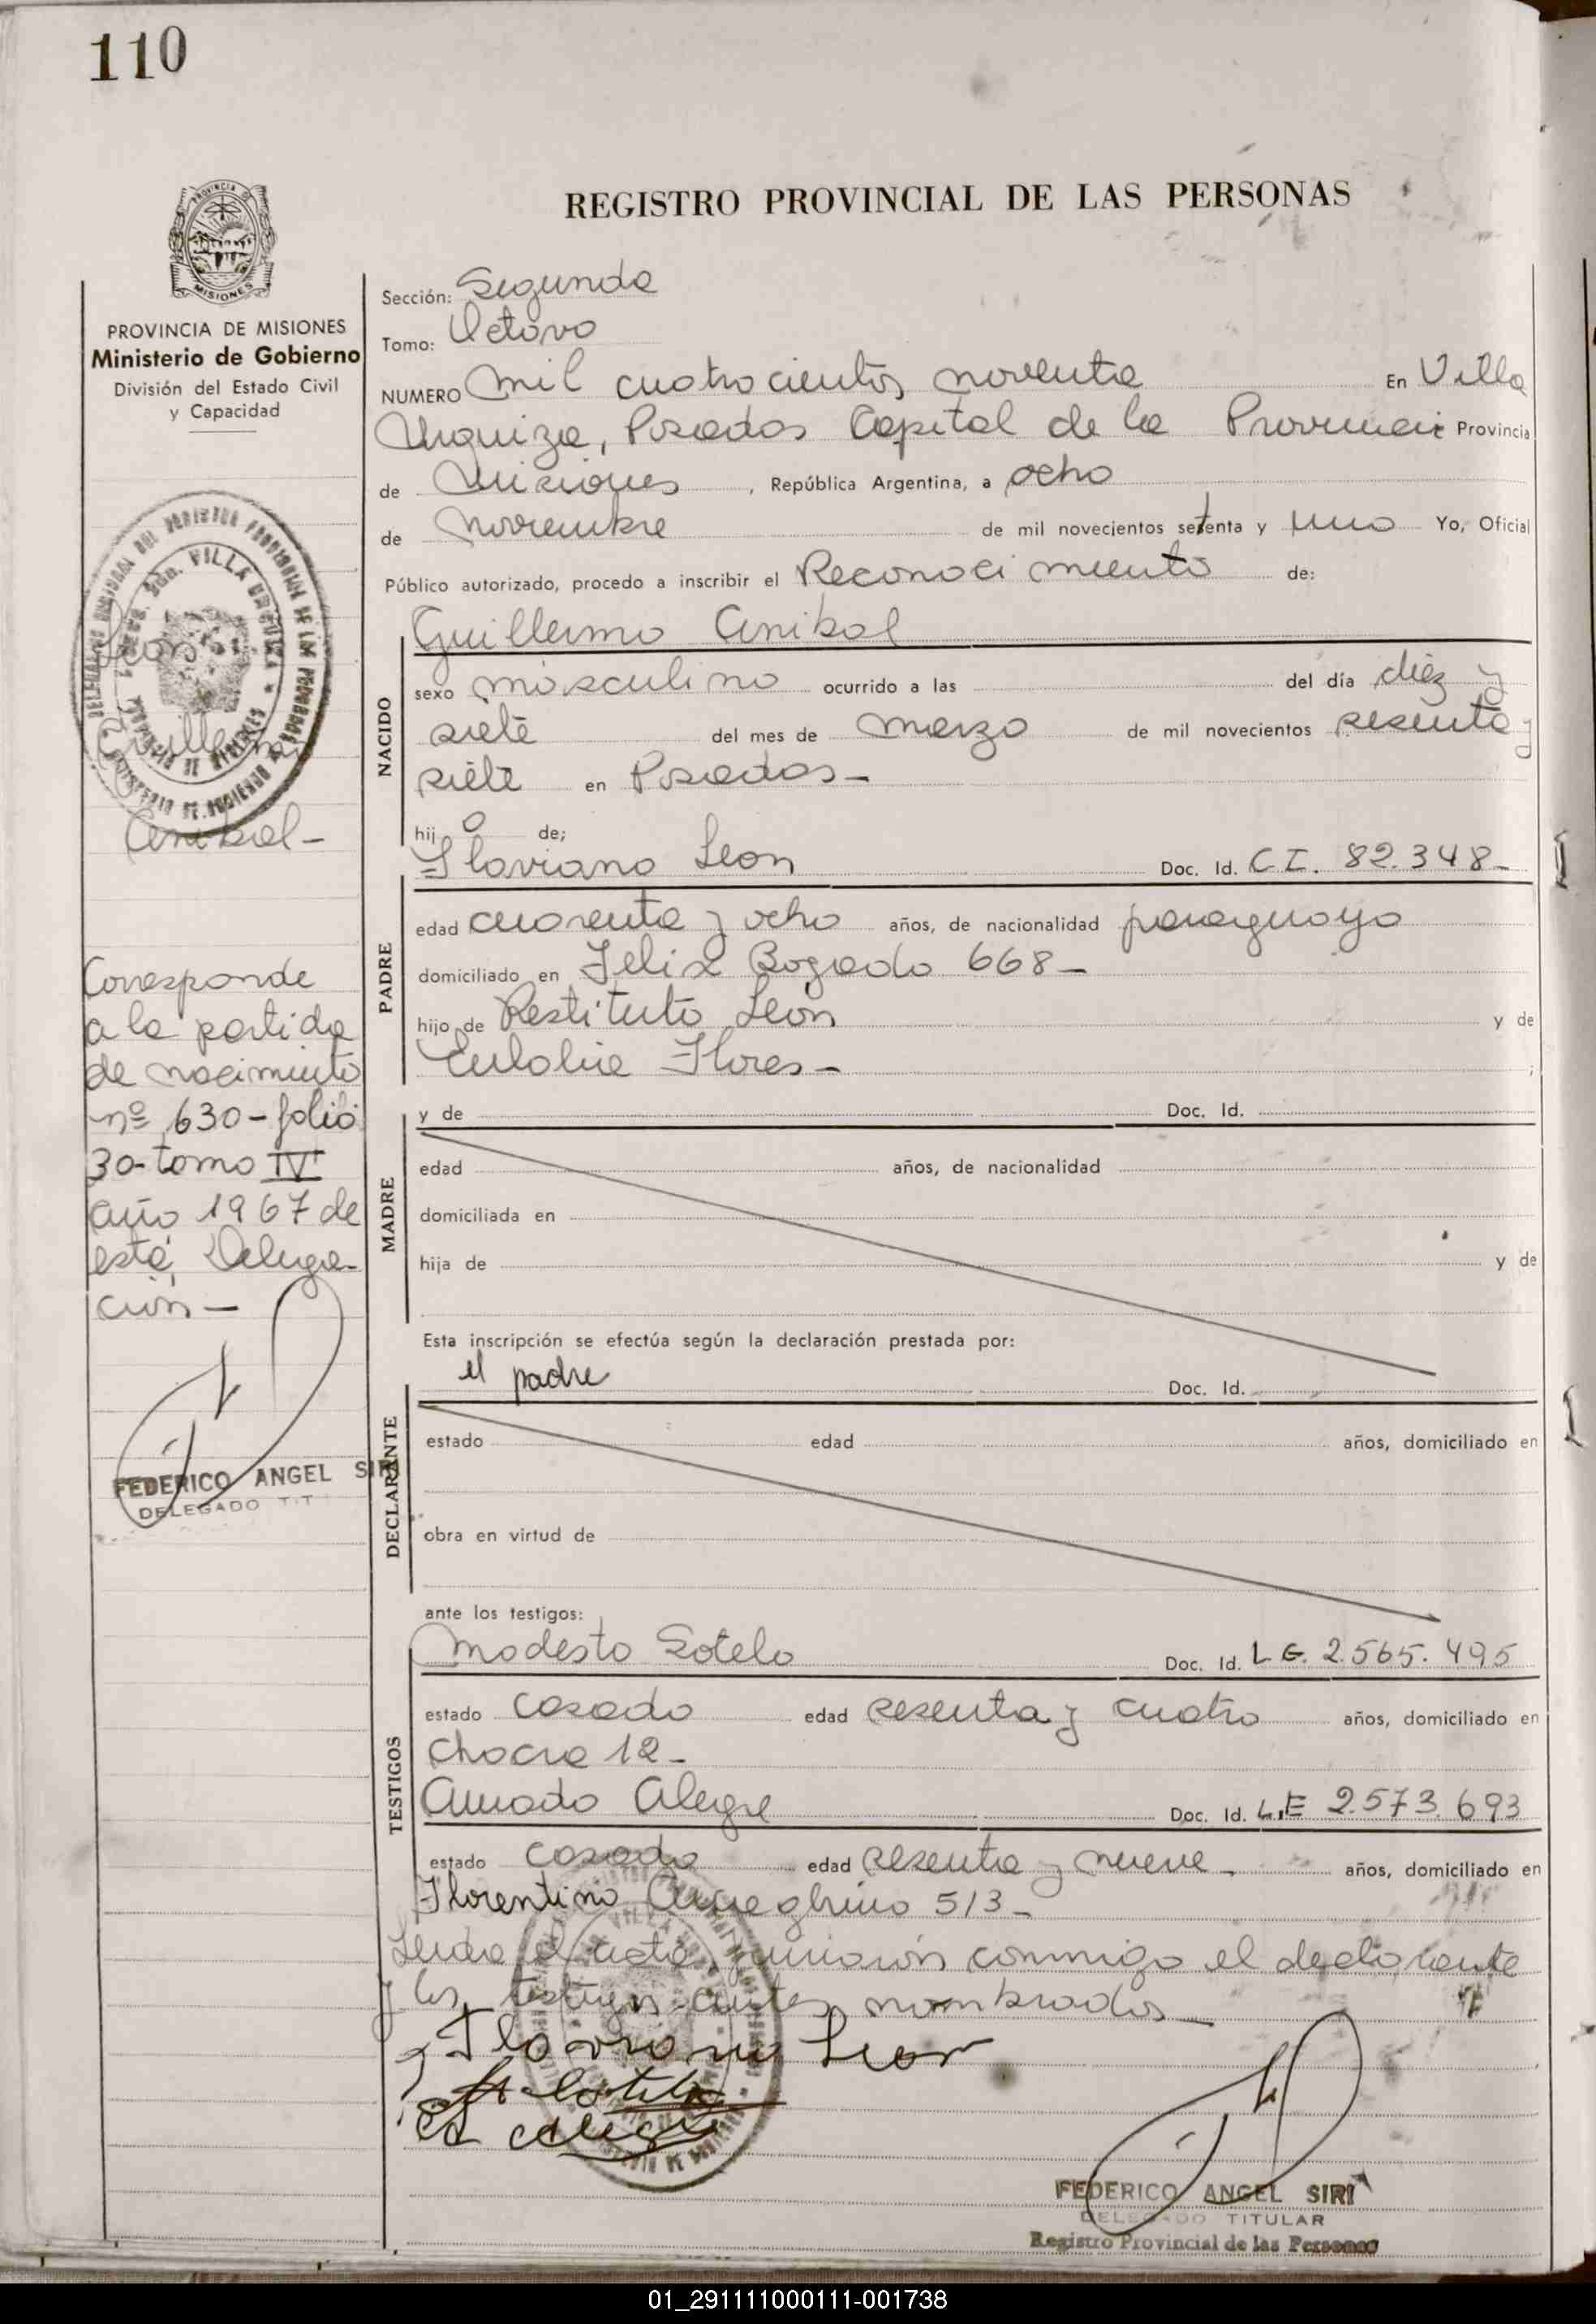 110
REGISTRO PROVINCIAL DE LAS PERSONAS
MISIONES
PROVINCIA DE MISIONES
Ministerio de Gobierno
División del Estado Civil
y Capacidad
Leon
Guillermo
Anibal-
Corresponde
a la partida
de nacimiento
nº 630-folio
30-tomo IV
año 1967 de
esta Delega-
ción-
FEDERICO ANGEL SIRI
DELEGADO TIT
Sección: Segunda
Tomo: Octavo
NUMERO mil cuatrocientos noventa En Villa
Urquiza, Posadas Capital de la Provincia Provincia
de Misiones, República Argentina, a ocho
de Noviembre de mil novecientos setenta y uno Yo, Oficial
Público autorizado, procedo a inscribir el Reconocimiento de:
Guillermo Anibal
NACIDO
sexo masculino ocurrido a las del día diez y
siete del mes de marzo de mil novecientos sesenta y
siete en Posadas-
hijo de;
Flaviano Leon Doc. Id. C.I. 82.348-
PADRE
edad cuarenta y ocho años, de nacionalidad paraguayo
domiciliado en Felix Bogado 668-
hijo de Restituto Leon y de
Eulalia Flores-;
MADRE
y de Doc. Id.
edad años, de nacionalidad
domiciliada en
hija de y de
Esta inscripción se efectúa según la declaración prestada por:
el padre Doc. Id.
DECLARANTE
estado edad años, domiciliado en
obra en virtud de
ante los testigos:
TESTIGOS
Modesto Sotelo Doc. Id. L.E. 2.565.495
estado casado edad sesenta y cuatro años, domiciliado en
Chacra 12-
Amado Alegre Doc. Id. L.E 2.573.693
estado casado edad sesenta y nueve- años, domiciliado en
Florentino Ameghino 513-
Leida el acta, firmaron conmigo el declarante
y los testigos antes nombrados-
Flaviano Leon
FEDERICO ANGEL SIRI
DELEGADO TITULAR
Registro Provincial de las Personas
01_291111000111-001738